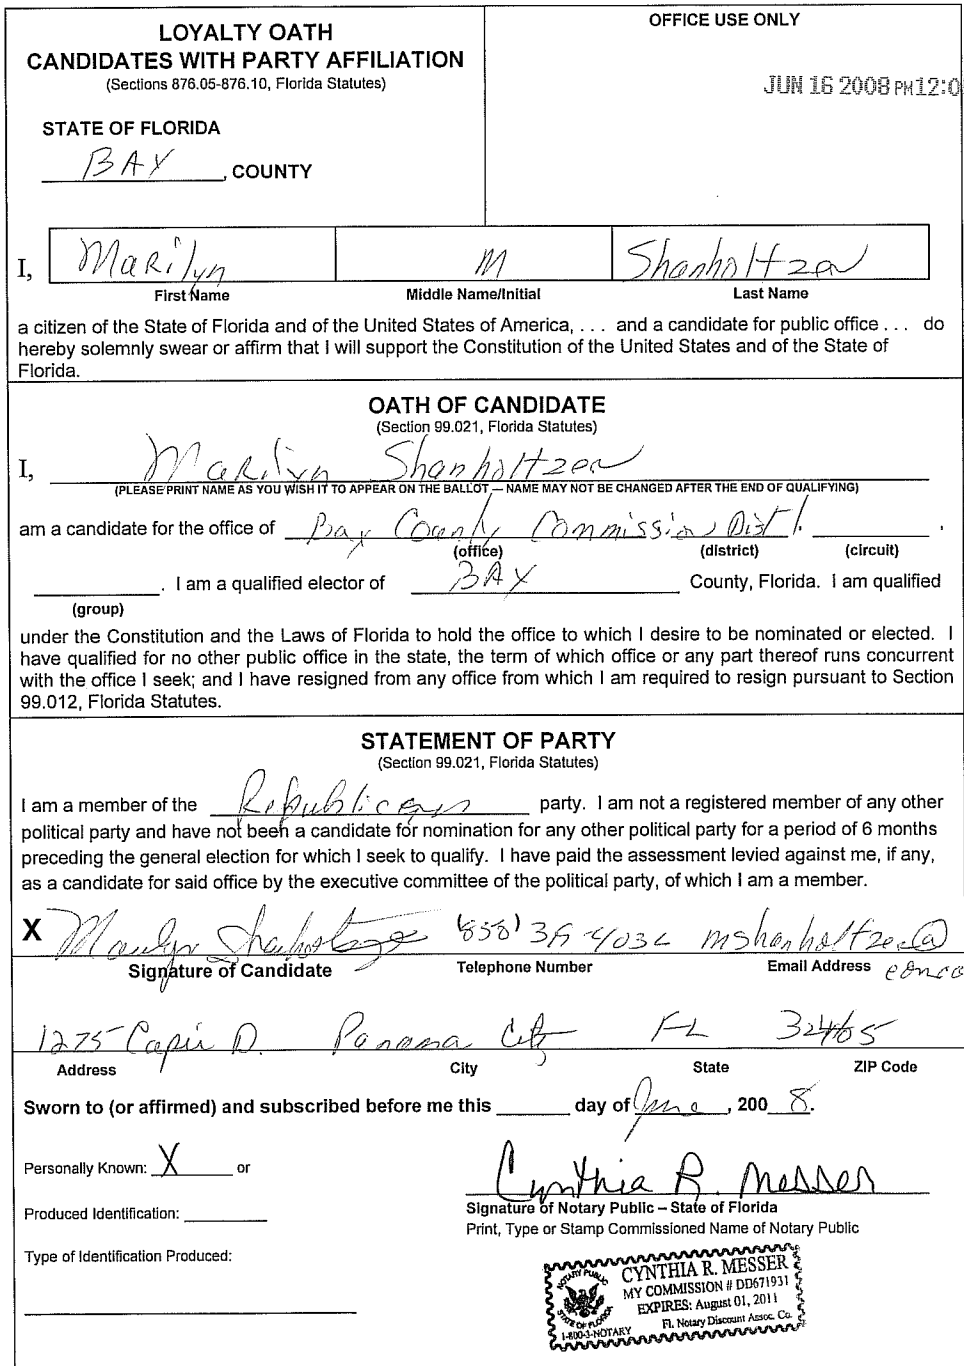 LOYALTY OATH
CANDIDATES WITH PARTY AFFILIATION
(Sections 876.05-876.10, Florida Statutes)
OFFICE USE ONLY
JUN 16 2008 PM 12:0
STATE OF FLORIDA
BAY , COUNTY
I, Marilyn M Shanholtzer
First Name Middle Name/Initial Last Name
a citizen of the State of Florida and of the United States of America, . . . and a candidate for public office . . . do
hereby solemnly swear or affirm that I will support the Constitution of the United States and of the State of
Florida.
OATH OF CANDIDATE
(Section 99.021, Florida Statutes)
I, Marilyn Shanholtzer
(PLEASE PRINT NAME AS YOU WISH IT TO APPEAR ON THE BALLOT — NAME MAY NOT BE CHANGED AFTER THE END OF QUALIFYING)
am a candidate for the office of Bay County Commission, Dist 1. ,
(office) (district) (circuit)
. I am a qualified elector of BAY County, Florida. I am qualified
(group)
under the Constitution and the Laws of Florida to hold the office to which I desire to be nominated or elected. I
have qualified for no other public office in the state, the term of which office or any part thereof runs concurrent
with the office I seek; and I have resigned from any office from which I am required to resign pursuant to Section
99.012, Florida Statutes.
STATEMENT OF PARTY
(Section 99.021, Florida Statutes)
I am a member of the Republican party. I am not a registered member of any other
political party and have not been a candidate for nomination for any other political party for a period of 6 months
preceding the general election for which I seek to qualify. I have paid the assessment levied against me, if any,
as a candidate for said office by the executive committee of the political party, of which I am a member.
X Marilyn Shanholtzer mshanholtzer@
Signature of Candidate Telephone Number Email Address
1275 Capri D. Panama City FL 32405
Address City State ZIP Code
Sworn to (or affirmed) and subscribed before me this day of June , 200 8.
Personally Known: X or
Cynthia R. Messer
Signature of Notary Public – State of Florida
Produced Identification:
Print, Type or Stamp Commissioned Name of Notary Public
Type of Identification Produced:
NOTARY PUBLIC
STATE OF FLORIDA
1-800-3-NOTARY
CYNTHIA R. MESSER
MY COMMISSION # DD671931
EXPIRES: August 01, 2011
Fl. Notary Discount Assoc. Co.